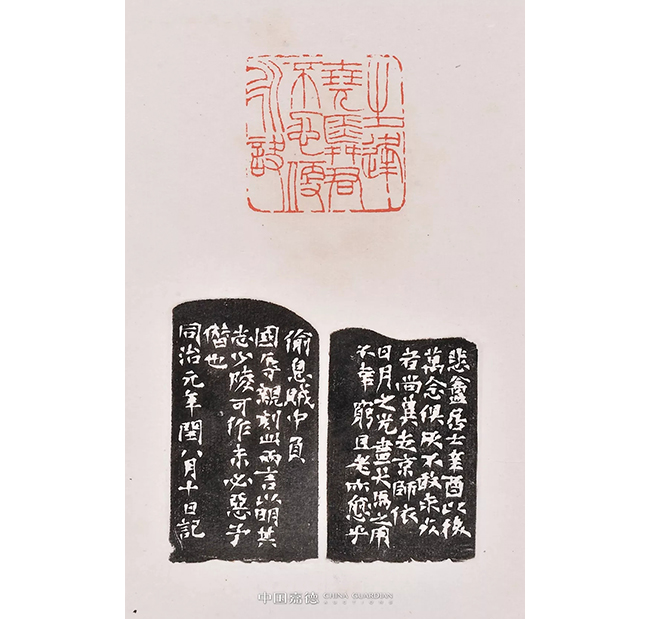 生逢
堯舜君
不忍便
永訣
悲盦居士辛酉以後
萬念俱灰不敢求死
者尚冀走京師依
日月之光盡犬馬之用
不幸窮且老亦愈乎
偷息賊中負
國辱親刻此兩言以明其
志少陵可作未必惡予
僭也
同治元年閏八月十日記
中国嘉德 CHINA GUARDIAN